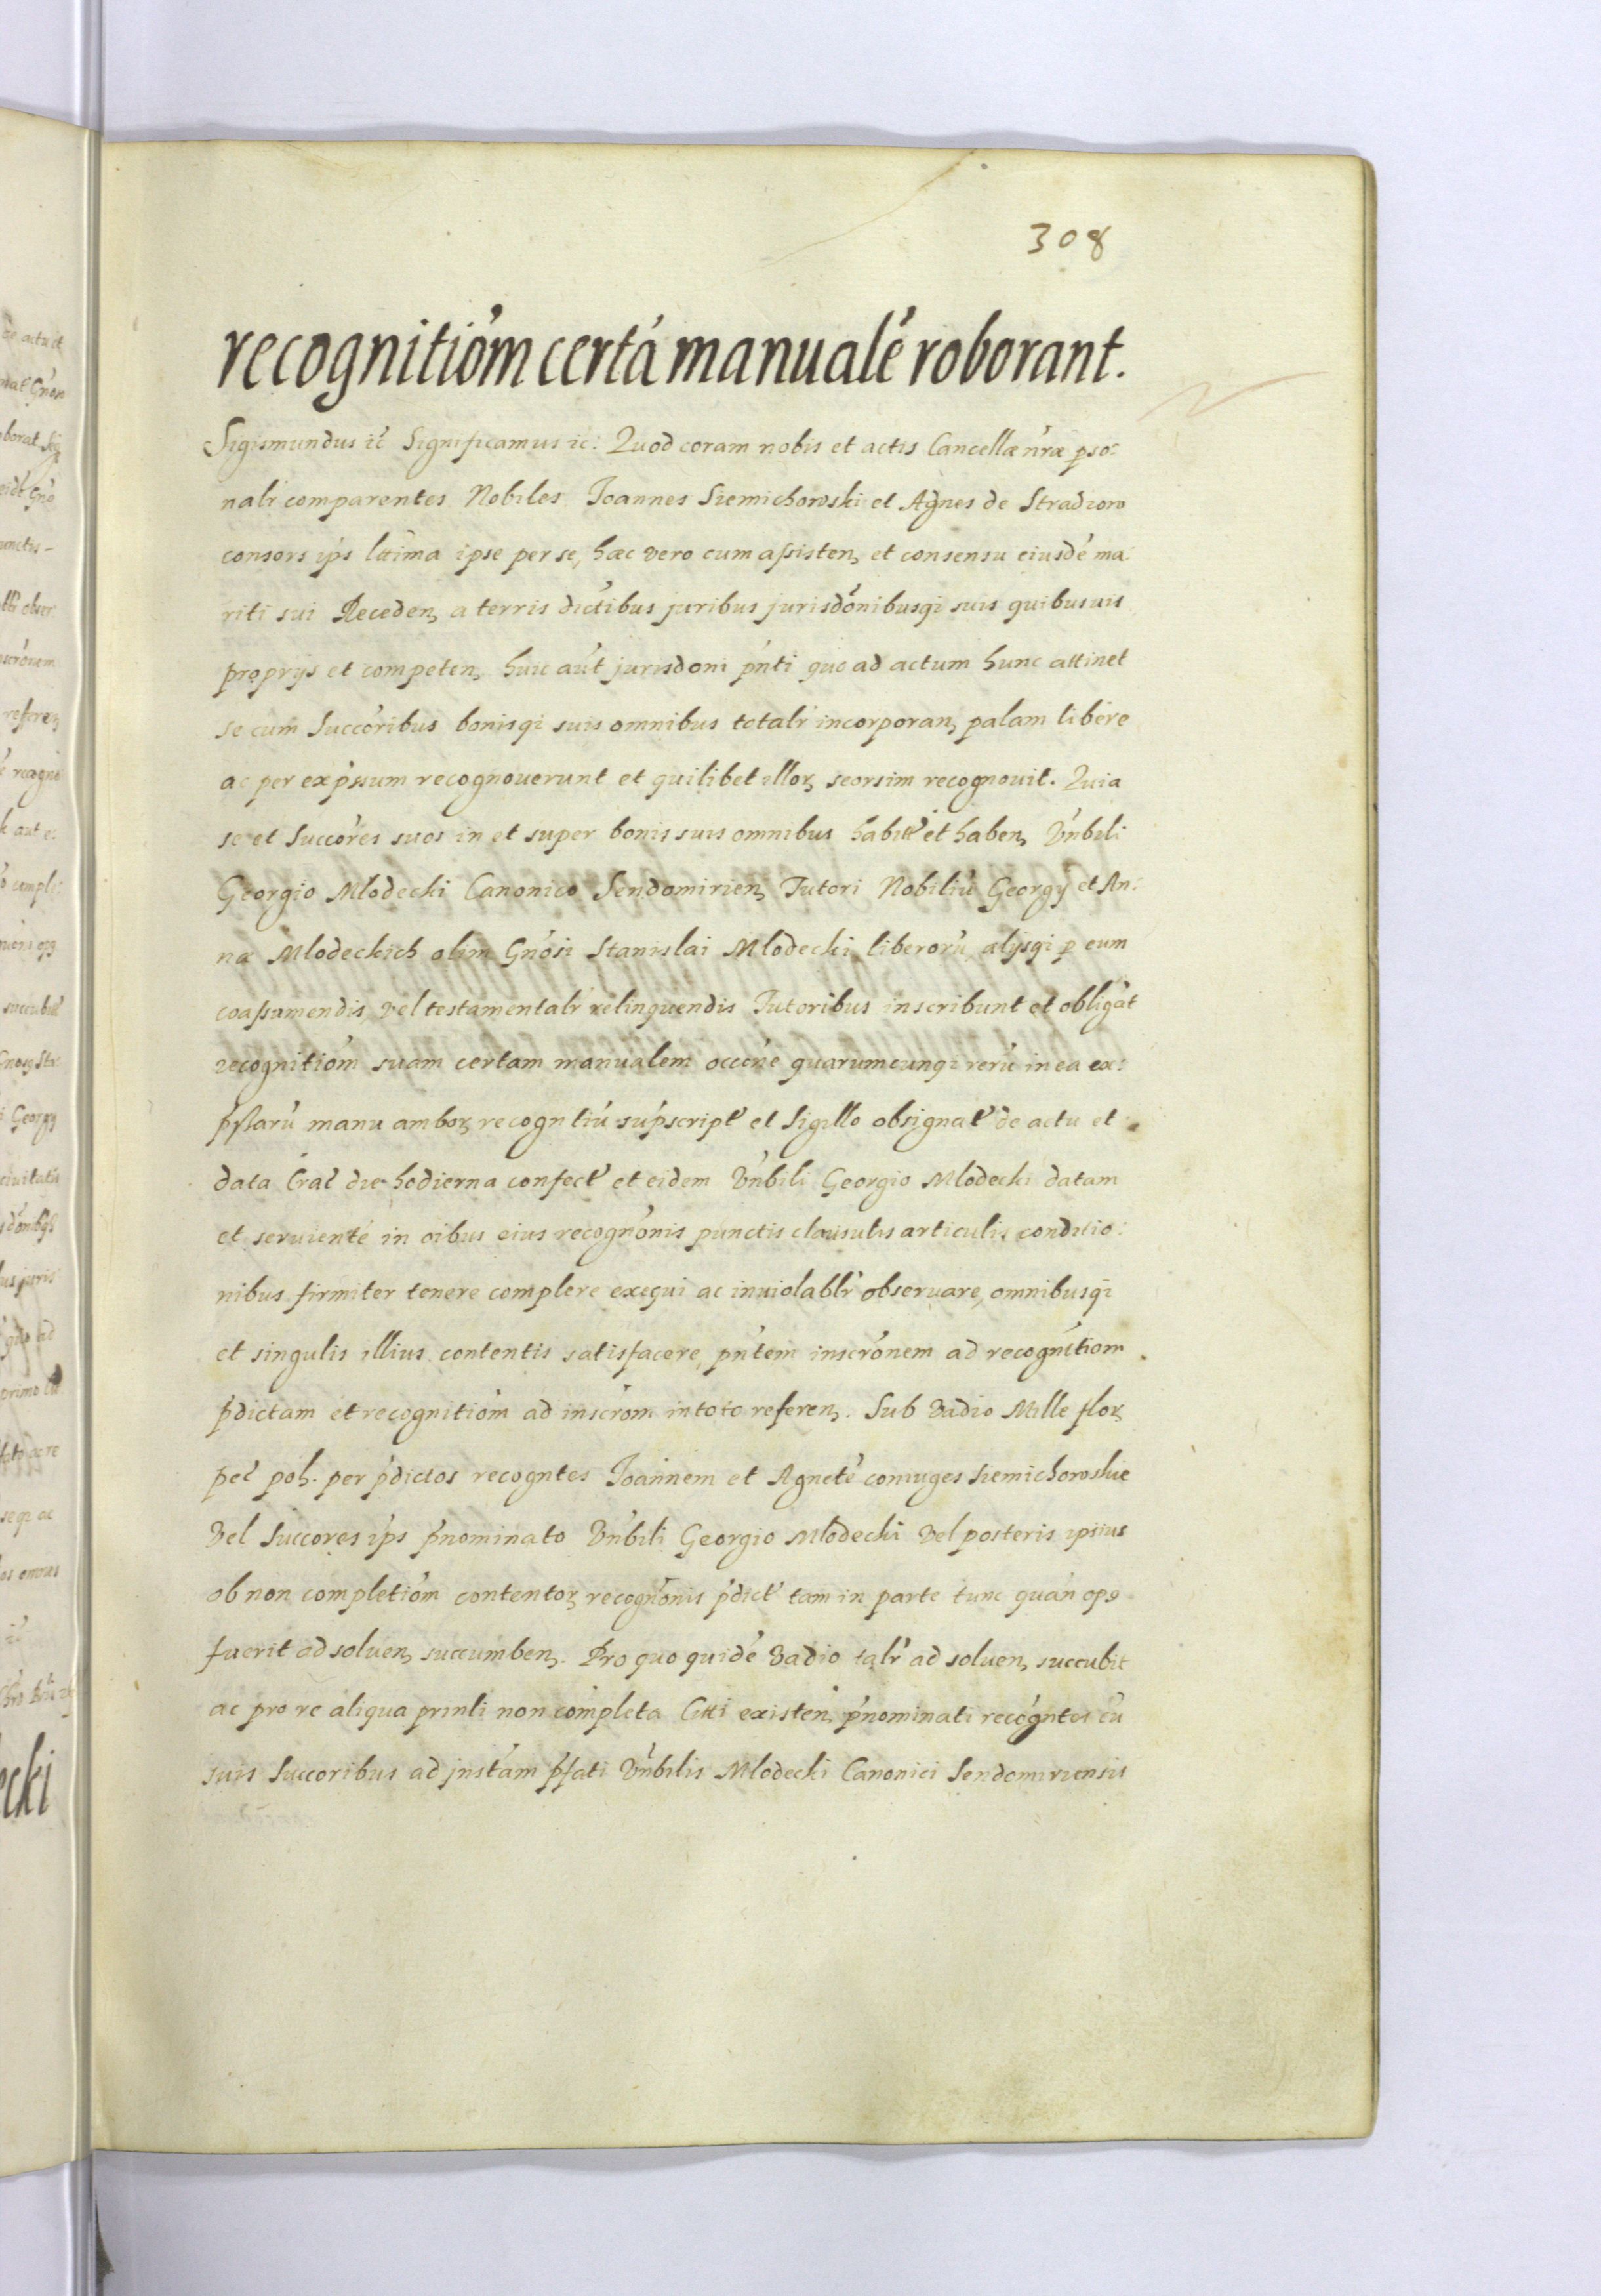 308
recognitiom certá manualé roborant.
Sigismundus ic̃ Significamus ic: Quod coram nobis et actis Cancellæ nr̃æ pso:
nalr̃ comparentes Nobiles Joannes Siemichowski et Agnes de Stradzow
consors ip̃s ltima ipse per se, hæc vero cum assisten, et consensu eiusdé ma:
riti sui Receden, a terris dictibus juribus jurisdónibusqi suis quibusuis
proprijs et competen, huic aút jurisdoni pńti quo ad actum hunc attinet
se cum Succóribus bonisqi suis omnibus totalr̃ incorporan, palam libere
ac per exp̃ssum recognouerunt et quilibet illoꝝ seorsim recognouit. Quia
se et Succóres suos in et super bonis suis omnibus habit̃ et haben, Vńbili
Georgio Młodecki Canonico Sendomirien, Tutori Nobiliú Georgij et An:
næ Mlodeckich olim Gńosi Stanislai Mlodecki liberorú, alijsqi p eum
coassumendis, vel testamentalr̃ relinquendis Tutoribus inscribunt et obligát
recognitióm suam certam manualem occóne quarumcunqi rerú in ea ex:
p̃ssarú manu amboꝝ recogntiú supscript̃ et Sigillo obsignat̃ de actu et
data Crac̃ die hodierna confect̃ et eidem Vńbili Georgio Mlodecki datam
et seruienté in oibus eius recognónis punctis clausulis articulis conditio:
nibus firmiter tenere complere exequi ac inuiolablr̃ obseruare, omnibusqi
et singulis illius contentis satisfacere, pńtem inscrónem ad recognitiom
p̃dictam et recognitióm ad inscróm in toto referen,. Sub Vadio Mille floꝝ
pec̃ poh. per p̃dictos recogntes Joannem et Agneté coniuges Siemichowskie
Vel Succores ip̃s p̃nominato Vńbili Georgio Mlodecki Vel posteris ipsius
ob non completióm contentoꝝ recognónis p̃dict̃ tam in parte tunc quań opꝯ
fuerit ad soluen, succumben,. Pro quo quidé Vadio talr̃ ad soluen, succubit
ac pro re aliqua prinli non completa Citti existen, p̃nominati recógntes cú
suis Succoribus ad jnstám p̃fati Vńbilis Mlodecki Canonici Sendomiriensis